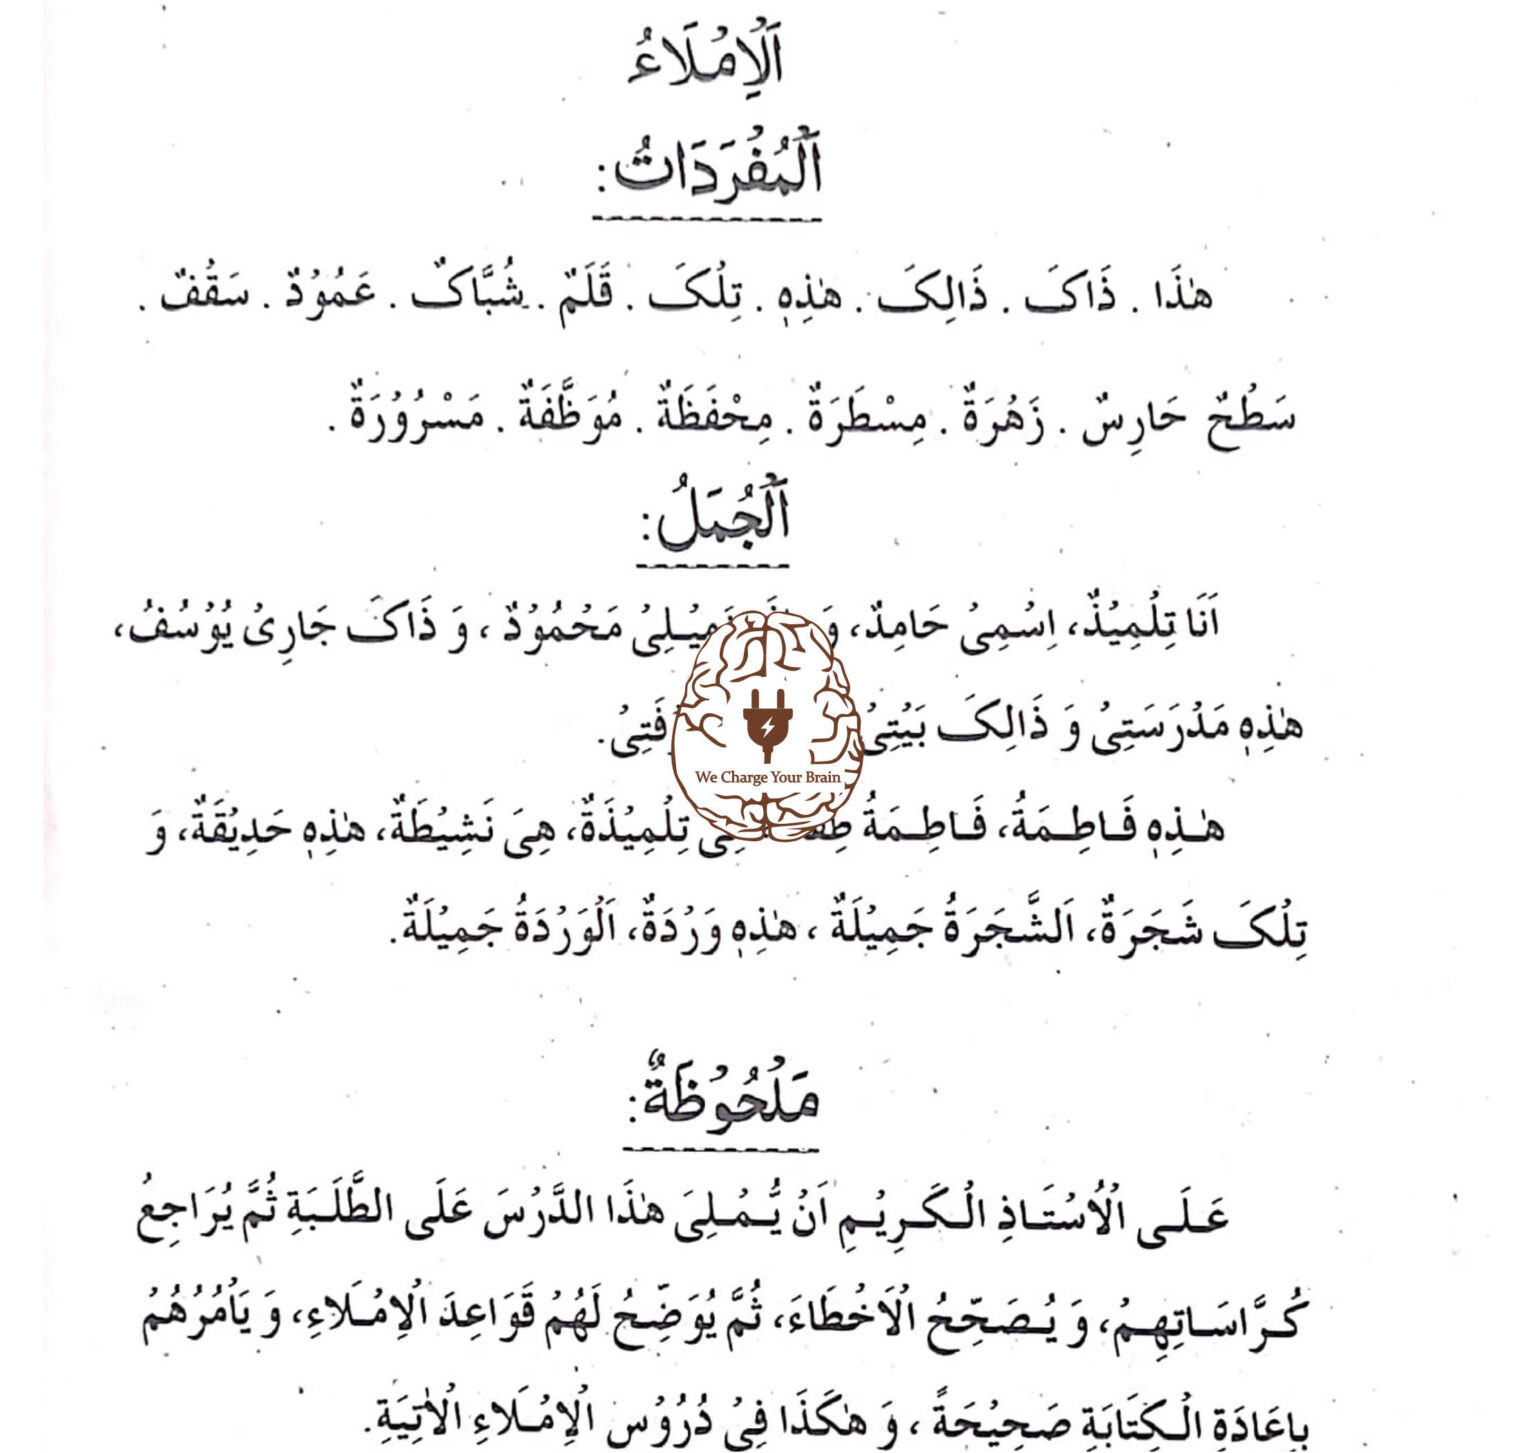 اَلْاِمْلَاءُ
اَلْمُفْرَدَاتُ:
هٰذَا . ذَاکَ . ذَالِکَ . هٰذِهٖ . تِلْکَ . قَلَمٌ . شُبَّاکٌ . عَمُوْدٌ . سَقْفٌ .
سَطْحٌ حَارِسٌ . زَهْرَةٌ . مِسْطَرَةٌ . مِحْفَظَةٌ . مُوَظَّفَةٌ . مَسْرُوْرَةٌ .
اَلْجُمَلُ:
اَنَا تِلْمِيْذٌ، اِسْمِیْ حَامِدٌ، وَ زَمِيْلِیْ مَحْمُوْدٌ ، وَ ذَاکَ جَارِیْ يُوْسُفُ،
هٰذِهٖ مَدْرَسَتِیْ وَ ذَالِکَ بَيْتِیْ
هٰذِهٖ فَاطِمَةُ، فَاطِمَةُ تِلْمِيْذَةٌ، هِیَ نَشِيْطَةٌ، هٰذِهٖ حَدِيْقَةٌ، وَ
تِلْکَ شَجَرَةٌ، اَلشَّجَرَةُ جَمِيْلَةٌ ، هٰذِهٖ وَرْدَةٌ، اَلْوَرْدَةُ جَمِيْلَةٌ.
We Charge Your Brain
مَلْحُوْظَةٌ:
عَلَی الْاُسْتَاذِ الْکَرِيْمِ اَنْ يُّمْلِیَ هٰذَا الدَّرْسَ عَلَی الطَّلَبَةِ ثُمَّ يُرَاجِعُ
کُرَّاسَاتِهِمْ، وَ يُصَحِّحُ الْاَخْطَاءَ، ثُمَّ يُوَضِّحُ لَهُمْ قَوَاعِدَ الْاِمْلَاءِ، وَ يَاْمُرُهُمْ
بِاِعَادَةِ الْکِتَابَةِ صَحِيْحَةً ، وَ هٰکَذَا فِیْ دُرُوْسِ الْاِمْلَاءِ الْاٰتِيَةِ.